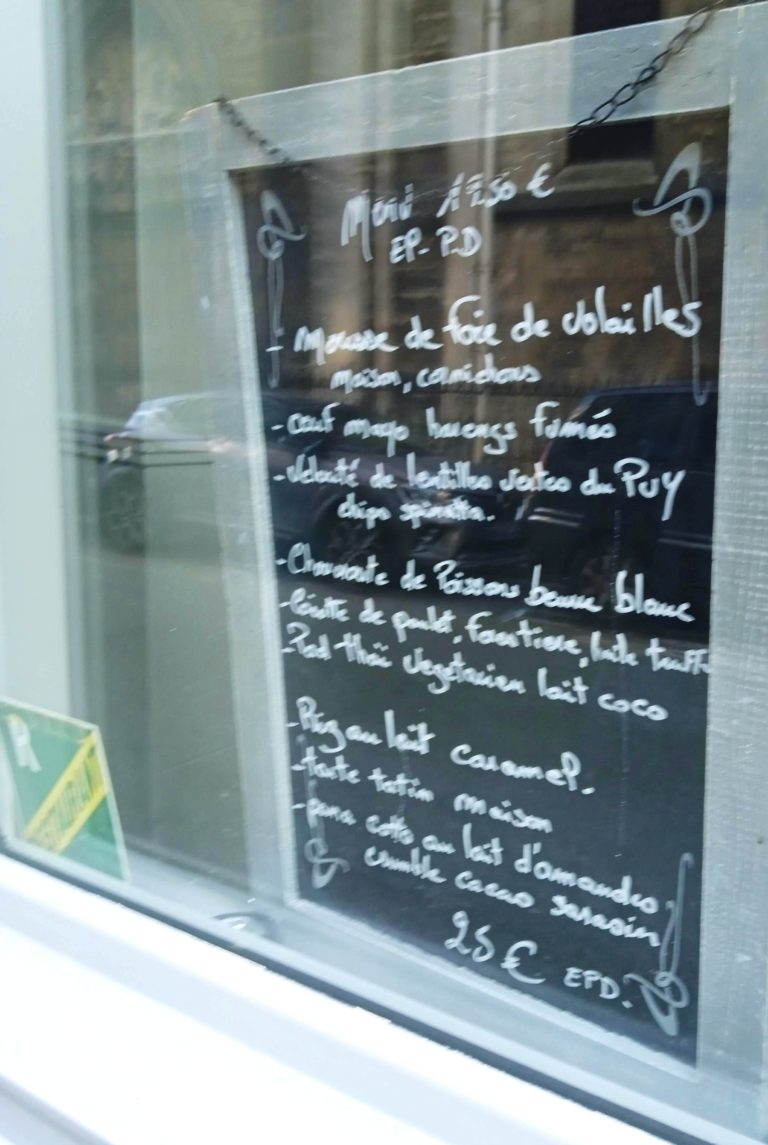 Menu 17.50 €
EP-P.D
- Mousse de foie de volailles
maison, cornichons
- œuf mayo harengs fumés
- Velouté de lentilles vertes du PUY
chips
- Choucroute de Poissons beurre blanc
- de poulet, forestière, huile truffe
- Pad-thaï vegetarien lait coco
- Riz au lait caramel.
- tarte tatin maison
- pana cotta au lait d'amandes
crumble cacao sarrasin
25 € EPD.
R
RESTAURANT